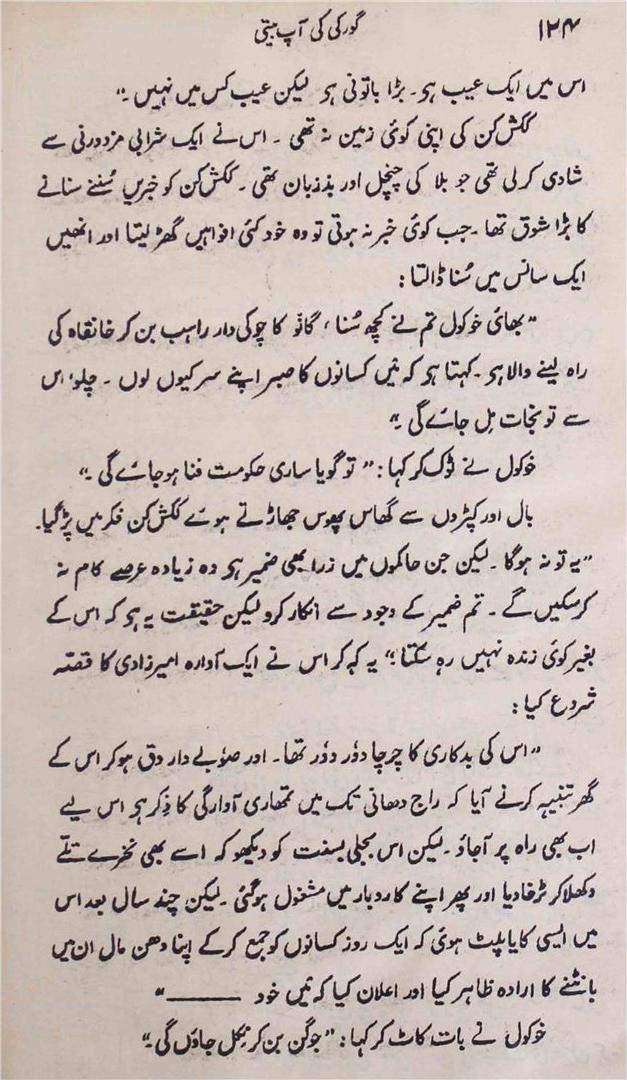 ۱۲۴ گورکی کی آپ بیتی
اس میں ایک عیب ہو۔ بڑا باتونی ہو لیکن عیب کس میں نہیں۔"
ککش کن کی اپنی کوئی زمین نہ تھی ۔ اس نے ایک شرابی مزدورنی سے
شادی کرلی تھی جو بلا کی چنچل اور بدزبان تھی ۔ ککش کن کو خبریں سُننے سنانے
کا بڑا شوق تھا ۔ جب کوئی خبر نہ ہوتی تو وہ خود کئی افواہیں گھڑ لیتا اور انھیں
ایک سانس میں سُنا ڈالتا :
"بھائی خوکول تم نے کچھ سُنا ، گانو کا چوکی دار راہب بن کر خانقاہ کی
راہ لینے والا ہو ۔ کہتا ہو کہ مَیں کسانوں کا صبر اپنے سر کیوں لوں ۔ چلو، اس
سے تو نجات مِل جائے گی ۔"
خوکول نے ٹوک کر کہا : "تو گویا ساری حکومت فنا ہو جائے گی ۔"
بال اور کپڑوں سے گھاس پھوس جھاڑتے ہوئے ککش کن فکر میں پڑ گیا۔
"یہ تو نہ ہوگا ۔ لیکن جن حاکموں میں ذرا بھی ضمیر ہو وہ زیادہ عرصے کام نہ
کر سکیں گے ۔ تم ضمیر کے وجود سے انکار کرو لیکن حقیقت یہ ہو کہ اس کے
بغیر کوئی زندہ نہیں رہ سکتا :" یہ کہ کر اس نے ایک آوارہ امیرزادی کا قصّہ
شروع کیا :
"اس کی بدکاری کا چرچا دوٗر دوٗر تھا۔ اور صوٗبے دار دِق ہو کر اس کے
گھر تنبیہہ کرنے آیا کہ راج دھانی تک میں تمھاری آوارگی کا ذِکر ہو اس لیے
اب بھی راہ پر آجاؤ ۔ لیکن اس بجلی بسفت کو دیکھو کہ اسے بھی نخرے تلّے
دکھلا کر ٹرخا دیا اور پھر اپنے کاروبار میں مشغول ہوگئی ۔ لیکن چند سال بعد اس
میں ایسی کایا پلٹ ہوئی کہ ایک روز کسانوں کو جمع کر کے اپنا دھن مال ان میں
بانٹنے کا ارادہ ظاہر کیا اور اعلان کیا کہ مَیں خود ———"
خوکول نے بات کاٹ کر کہا : "جوگن بن کر نکل جاؤں گی ۔"